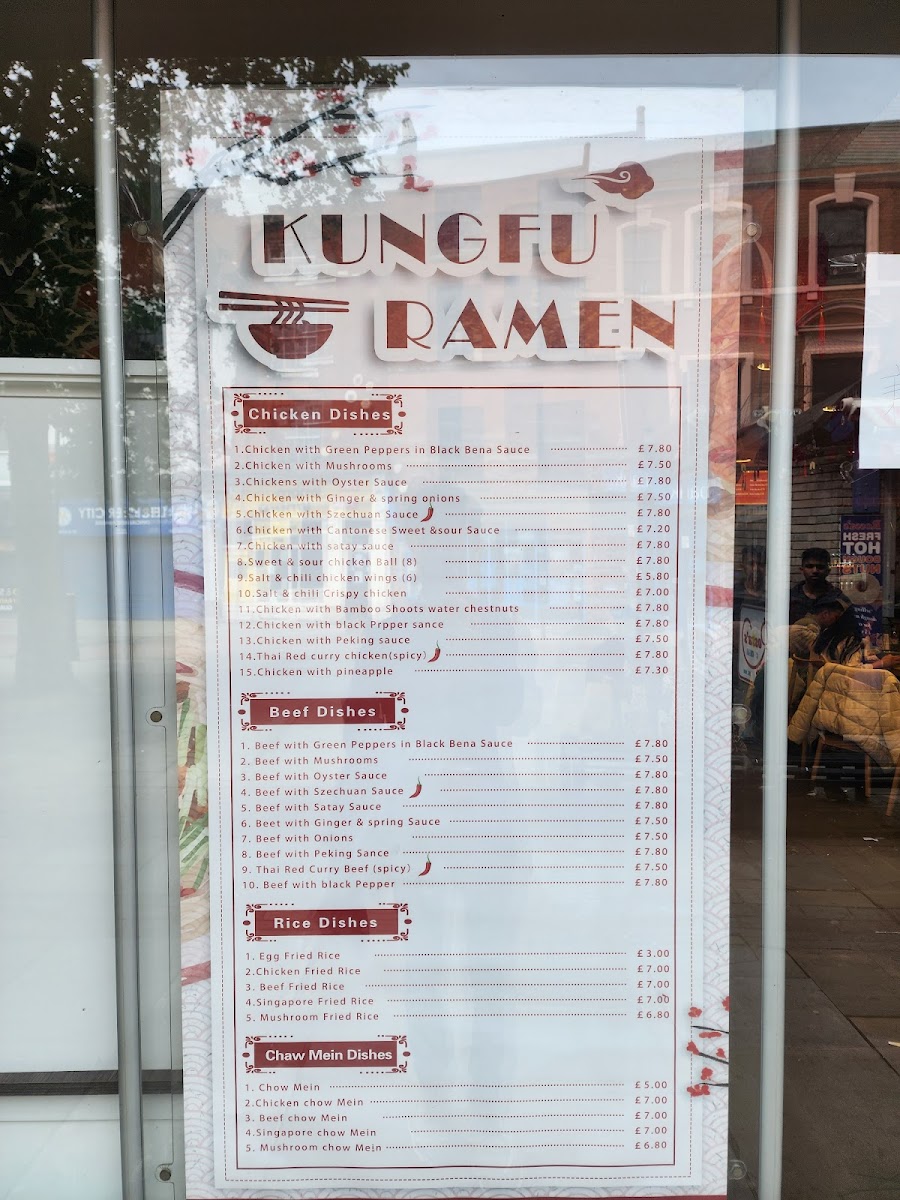 KUNGFU
RAMEN
Chicken Dishes
1.Chicken with Green Peppers in Black Bena Sauce £7.80
2.Chicken with Mushrooms £7.50
3.Chickens with Oyster Sauce £7.80
4.Chicken with Ginger & spring onions £7.50
5.Chicken with Szechuan Sauce £7.80
6.Chicken with Cantonese Sweet &sour Sauce £7.20
7.Chicken with satay sauce £7.80
8.Sweet & sour chicken Ball (8) £7.80
9.Salt & chili chicken wings (6) £5.80
10.Salt & chili Crispy chicken £7.00
11.Chicken with Bamboo Shoots water chestnuts £7.80
12.Chicken with black Prpper sance £7.80
13.Chicken with Peking sauce £7.50
14.Thai Red curry chicken(spicy) £7.80
15.Chicken with pineapple £7.30
Beef Dishes
1. Beef with Green Peppers in Black Bena Sauce £7.80
2. Beef with Mushrooms £7.50
3. Beef with Oyster Sauce £7.80
4. Beef with Szechuan Sauce £7.80
5. Beef with Satay Sauce £7.80
6. Beet with Ginger & spring Sauce £7.50
7. Beef with Onions £7.50
8. Beef with Peking Sance £7.80
9. Thai Red Curry Beef (spicy) £7.50
10. Beef with black Pepper £7.80
Rice Dishes
1. Egg Fried Rice £3.00
2.Chicken Fried Rice £7.00
3. Beef Fried Rice £7.00
4.Singapore Fried Rice £7.00
5. Mushroom Fried Rice £6.80
Chaw Mein Dishes
1. Chow Mein £5.00
2.Chicken chow Mein £7.00
3. Beef chow Mein £7.00
4.Singapore chow Mein £7.00
5. Mushroom chow Mein £6.80
FRESH
HOT